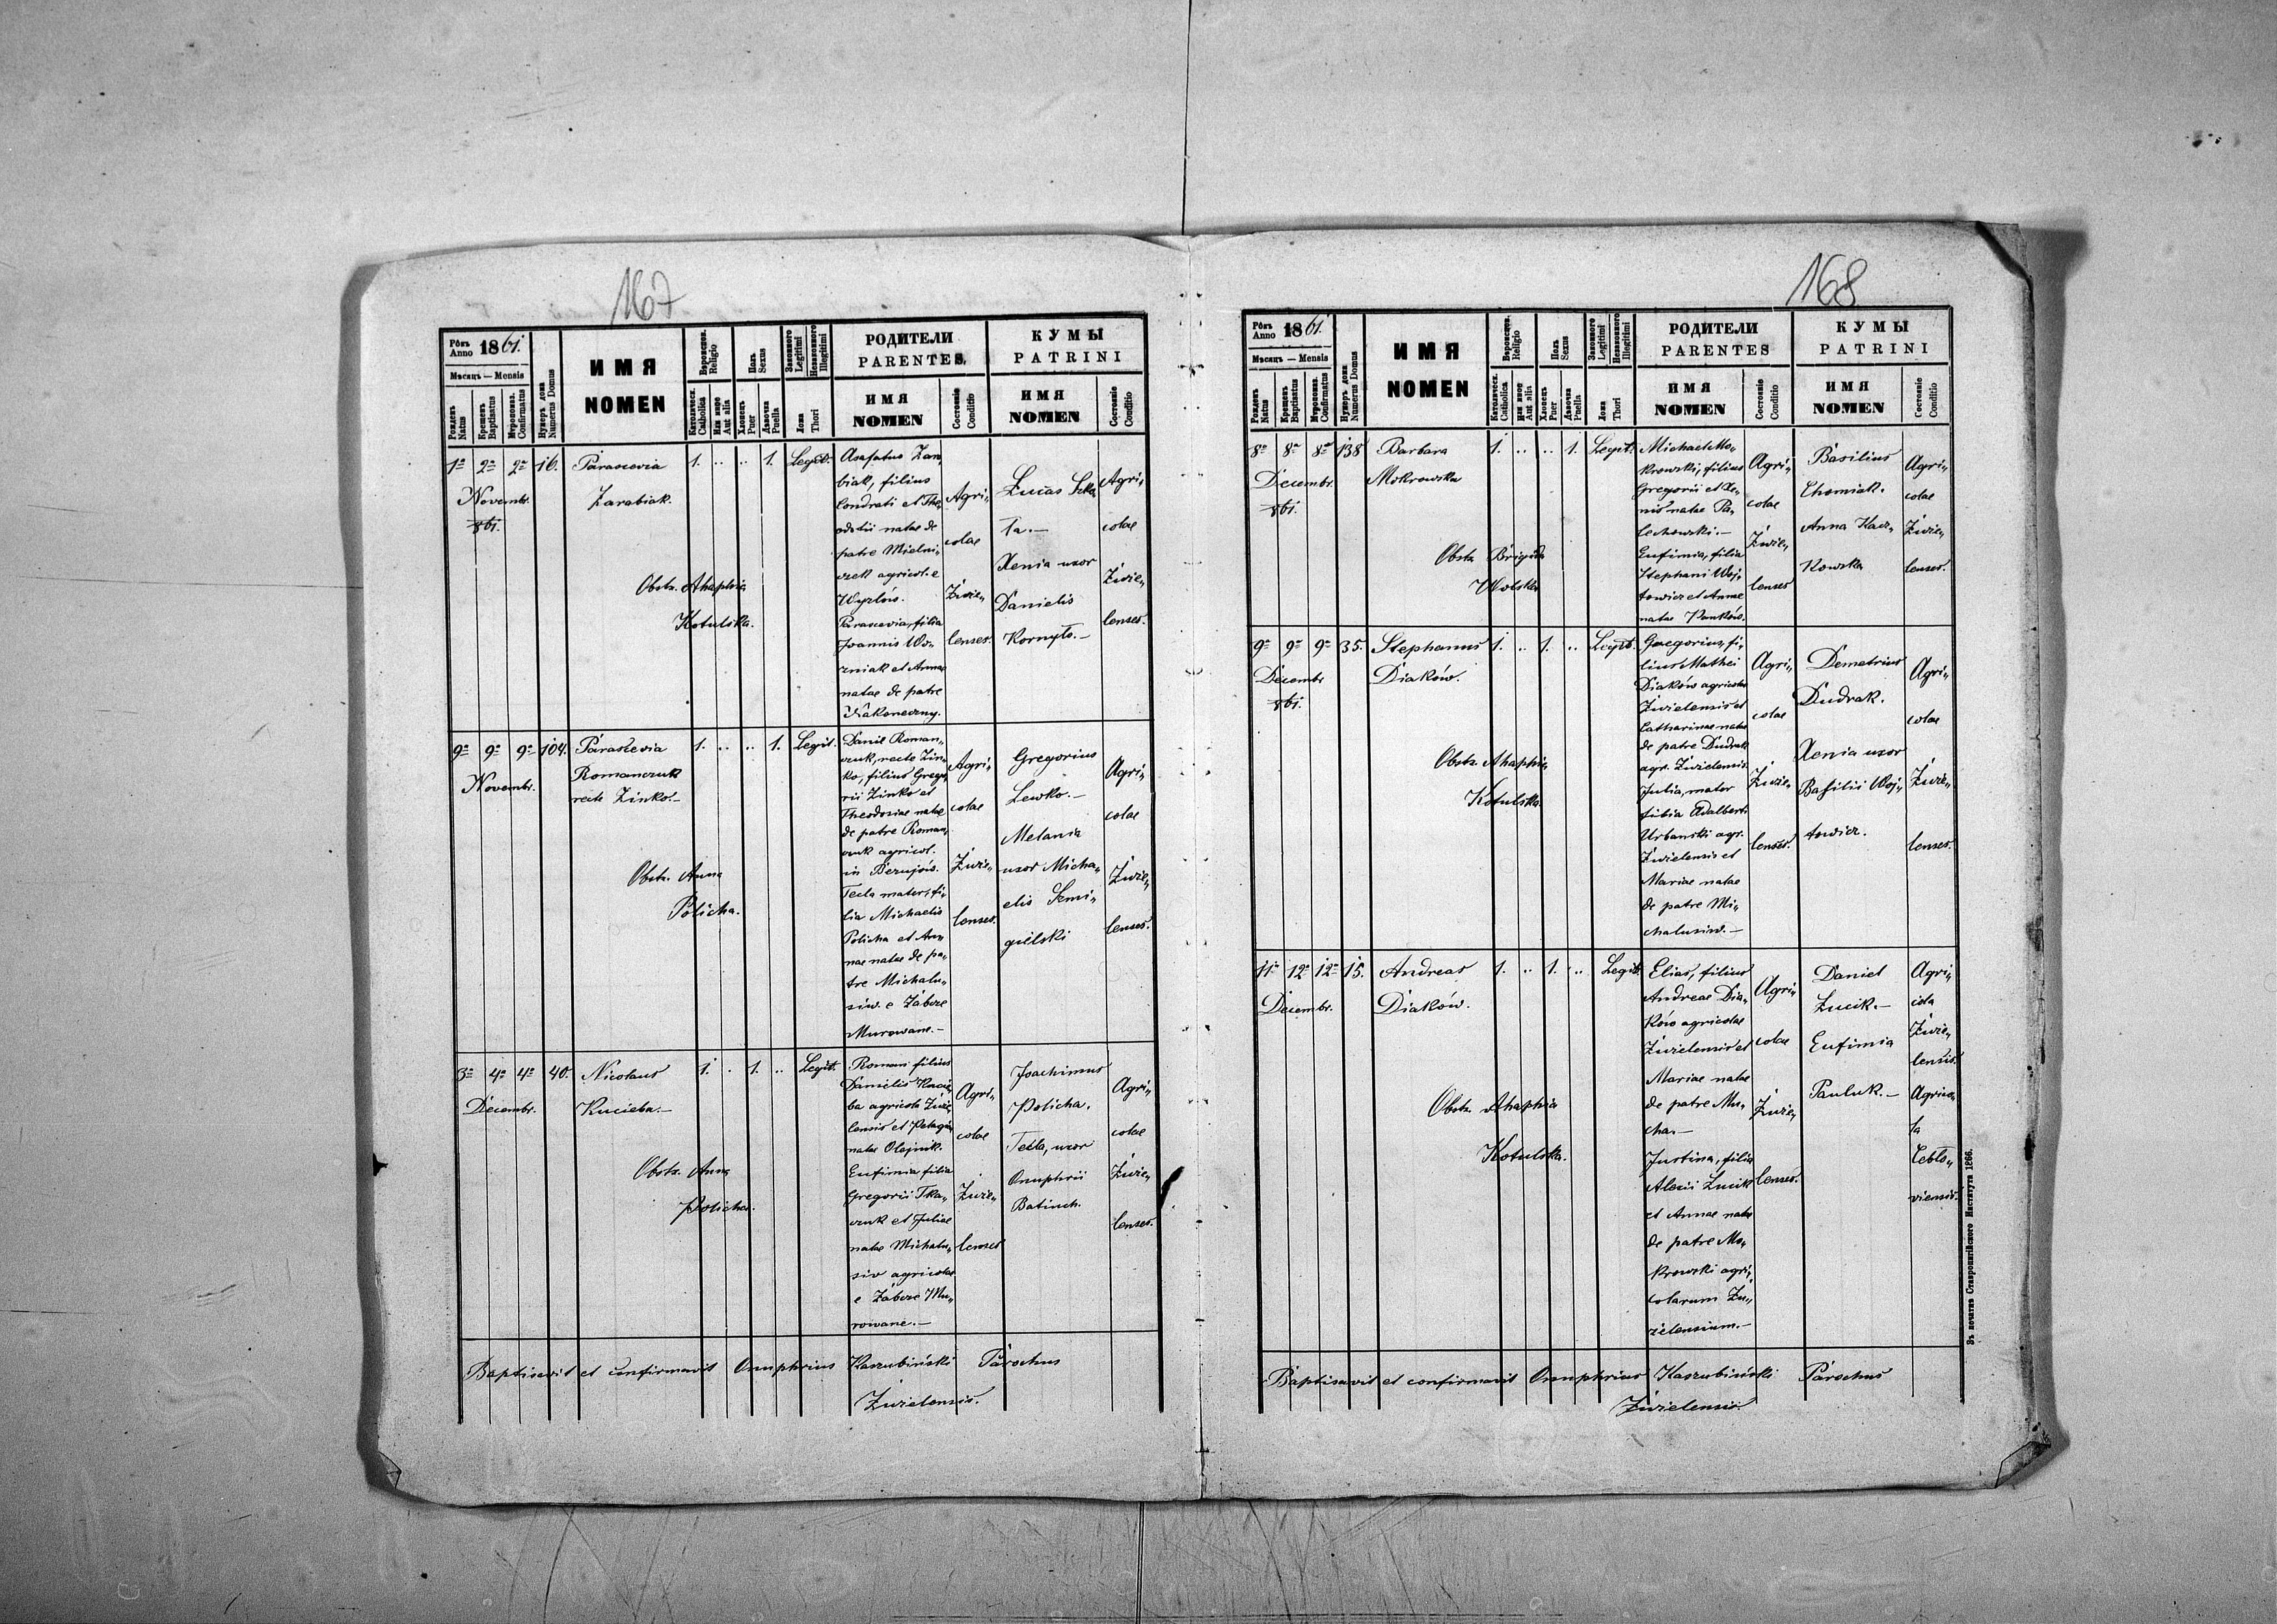 167
Рôкъ Anno 1861.
Мѣсяцъ — Mensis
Рожденъ Natus
Крещенъ Baptisatus
Мѵропомаз. Confirmatus
Нумеръ дома Numerus Domus
ИМЯ
NOMEN
Religio
Католическ. Catholica
Или иное Aut alia
Полъ Sexus
Хлопецъ Puer
Дѣвочка Puella
Законного Legitimi
Незаконного Illegitimi
Ложа Thori
РОДИТЕЛИ
PARENTES.
ИМЯ
NOMEN
Состояніе Conditio
КУМЫ
PATRINI
ИМЯ
NOMEN
Состояніе Conditio
1a 2a 2a 16.
Novembr.
861.
Parascevia
Zarabiak.
Obstr. Ahaphia
Kotulska.
1. .. .. 1. Legit.
biak, filius
Condrati et The,
natae de
patre Mielni,
czek agricol. e
Wyzłów.
Parascevia, filia
Joannis Wo,
zniak et Annae
natae de patre
Niakoneczny.
Agri,
colae
Żwie,
lenses.
Lucas
ta.—
Xenia uxor
Danielis
Kornyło.—
Agri,
colae
Żwie,
lenses.
9a 9a 9a 104.
Novembr.
Parascevia
Romanczuk
recte Zinko.—
Obstr. Anna
Policha.
1. .. .. 1. Legit.
Danil Roman,
czuk, recte Zin,
ko, filius Grego,
rii Zinko et
Theodosiae natae
de patre Roman,
czuk agricol.
in
Tecla mater, fi,
lia Michaelis
Policha et An,
nae natae de pa,
tre Michalu,
siw. e Zabcze
Murowane.—
Agri,
colae
Żwie,
lenses.
Gregorius
Lewko.—
Melania
uxor Micha,
elis Semi,
gielski
Agri,
colae
Żwie,
lenses.
3a 4a 4a 40.
Decembr.
Nicolaus
Kucieba.—
Obstr. Anna
Policha.
1. . 1. .. Legit.
Roman filius
Danielis Kucie,
ba agricola Żwie,
lensis et Pelagia
natae Olejnik.
Eufimia, filia
Gregorii Tka,
czuk et Juliae
natae Michalu,
siw agricolae
e Zabcze Mu,
rowane.—
Agri,
colae
Żwie,
lenses
Joachimus
Policha.
Tecla, uxor
Onuphrii
Batiuch.
Agri,
colae
Żwie,
lenses.
Baptisavit et confirmavit Onuphrius Kaszubiński Parochus
Żwielensis.
168
Рôкъ Anno 1861.
Мѣсяцъ — Mensis
Рожденъ Natus
Крещенъ Baptisatus
Мѵропомаз. Confirmatus
Нумеръ дома Numerus Domus
ИМЯ
NOMEN
Religio
Католическ. Catholica
Или иное Aut alia
Полъ Sexus
Хлопецъ Puer
Дѣвочка Puella
Законного Legitimi
Незаконного Illegitimi
Ложа Thori
РОДИТЕЛИ
PARENTES
ИМЯ
NOMEN
Состояніе Conditio
КУМЫ
PATRINI
ИМЯ
NOMEN
Состояніе Conditio
8a 8a 8a 138
Decembr.
861.
Barbara
Mokrowska
Obstr. Brigida
Wolska
1. .. .. 1. Legit.
Michael Mo,
krowski, filius
Gregorii et Xe,
nis natae Pa,
lechowski.—
Eufimia, filia
Stephani Woj,
towicz et Annae
natae Pańków.
Agri,
colae
Żwie,
lenses
Basilius
Chomiak.
Anna Kacz,
kowska
Agri,
colae
Żwie,
lenses.
9a 9a 9a 35.
Decembr
861.
Stephanus
Diaków.
Obstr. Ahaphia
Kotulska.
1. .. 1. .. Legit.
Gregorius, fi,
lius Mathei
Diaków agricolae
Żwielensis et
Catharinae natae
de patre Dudrak
agr. Żwielensis.
Julia, mater
filia Adalberti
Urbanski agr.
Żwielensis et
Mariae natae
de patre Mi,
chalusiw.—
Agri,
colae
Żwie,
lenses.
Demetrius
Dudrak.
Xenia uxor
Basilii Woj,
towicz.
Agri,
colae
Żwie,
lenses.
11a 12a 12a 15.
Decembr.
Andreas
Diaków.
Obstr. Ahaphia
Kotulska.
1. .. 1. .. Legit.
Elias, filius
Andreae Dia,
ków agricolae
Żwielensis et
Mariae natae
de patre Mu,
cha.—
Justina, filia
Alexii Łucik
et Annae natae
de patre Mo,
krowski agri,
colarum Żw,
ielensium.—
Agri,
colae
Żwie,
lenses.
Daniel
Łucik.—
Eufimia
Pauluk.—
Agri,
cola
Żwie,
lensis.
Agrico,
la
Cebło,
viensis.
Baptisavit et confirmavit Onuphrius Kaszubiński Parochus
Żwielensis.
Зъ печатнѣ Ставропигійского Института 1866.